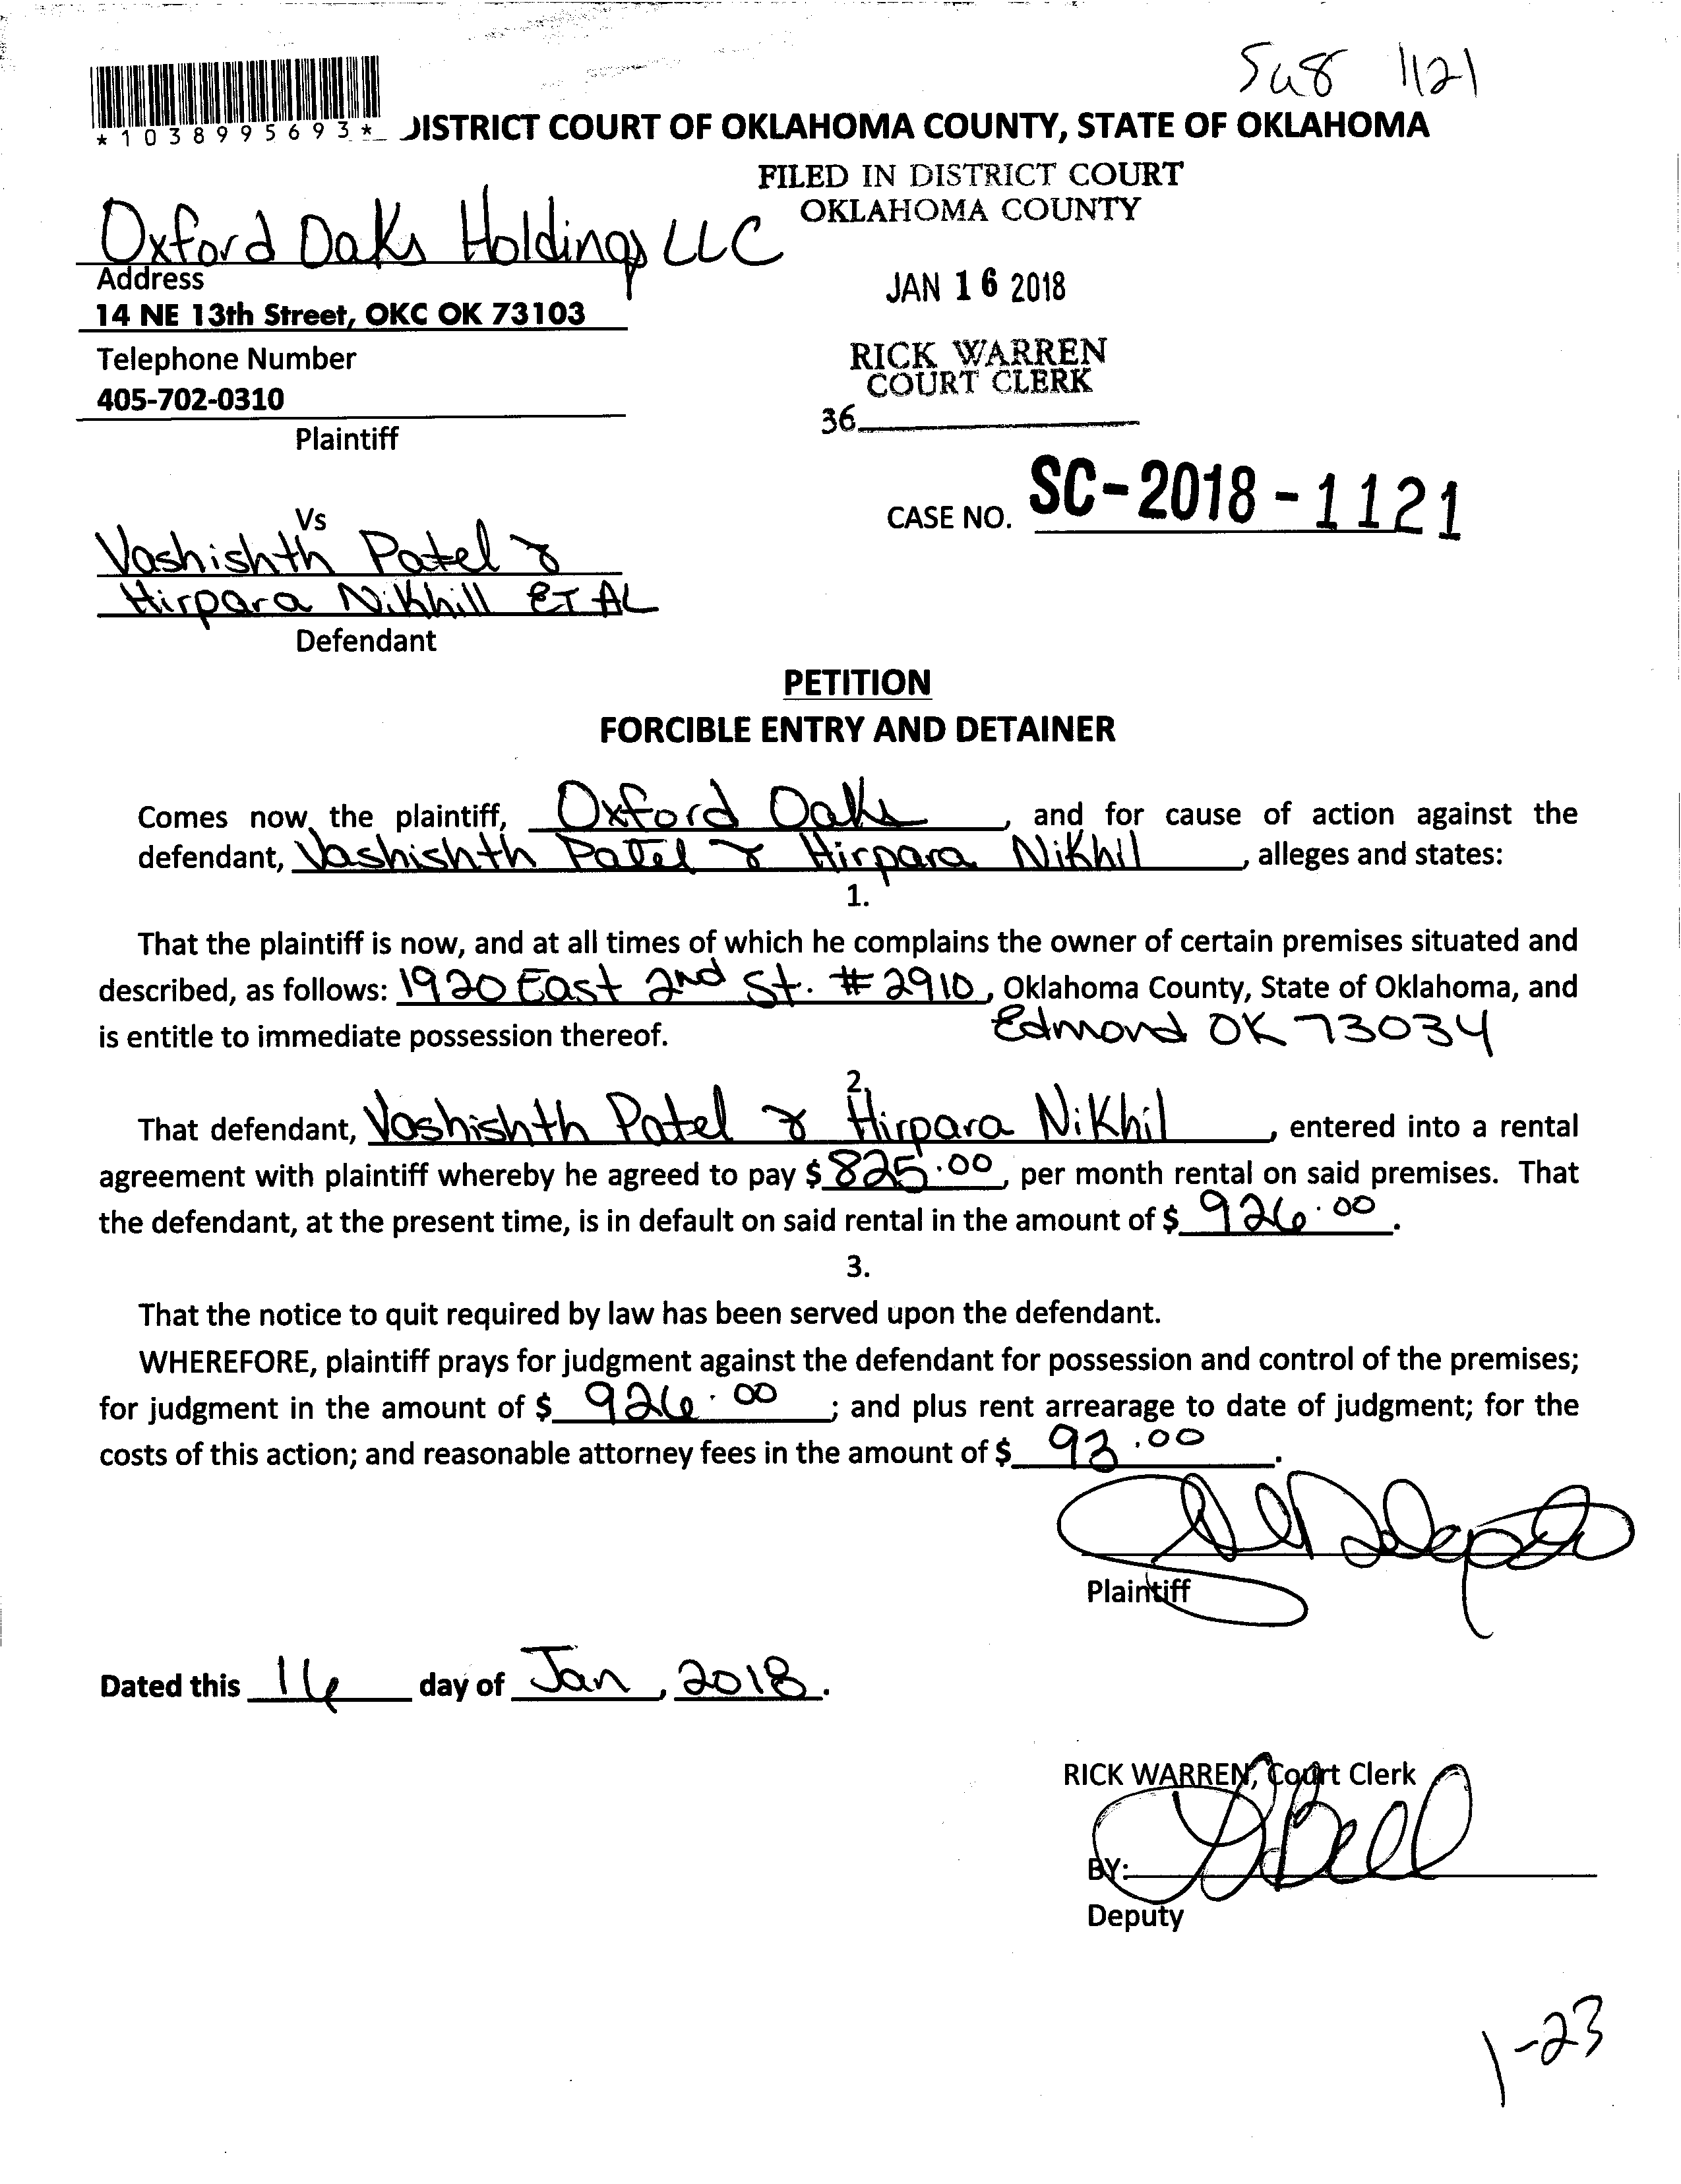 1121
*1038995693*
DISTRICT COURT OF OKLAHOMA COUNTY, STATE OF OKLAHOMA
FILED IN DISTRICT COURT
OKLAHOMA COUNTY
Oxford Oaks Holdings LLC
Address
14 NE 13th Street, OKC OK 73103
JAN 16 2018
Telephone Number
RICK WARREN
COURT CLERK
405-702-0310
36
Plaintiff
CASE NO. SC-2018-1121
Vs
Vashishth Patel &
Hirpara Nikhill ET AL
Defendant
PETITION
FORCIBLE ENTRY AND DETAINER
Comes now the plaintiff, Oxford Oaks, and for cause of action against the
defendant, Vashishth Patel & Hirpara Nikhil, alleges and states:
1.
That the plaintiff is now, and at all times of which he complains the owner of certain premises situated and
described, as follows: 1920 East 2nd St. #2910, Oklahoma County, State of Oklahoma, and
is entitle to immediate possession thereof. Edmond OK 73034
2.
That defendant, Vashishth Patel & Hirpara Nikhil, entered into a rental
agreement with plaintiff whereby he agreed to pay $825.00, per month rental on said premises. That
the defendant, at the present time, is in default on said rental in the amount of $926.00.
3.
That the notice to quit required by law has been served upon the defendant.
WHEREFORE, plaintiff prays for judgment against the defendant for possession and control of the premises;
for judgment in the amount of $926.00; and plus rent arrearage to date of judgment; for the
costs of this action; and reasonable attorney fees in the amount of $93.00.
Plaintiff
Dated this 16 day of Jan, 2018.
RICK WARREN, Court Clerk
BY: Bell
Deputy
1-23